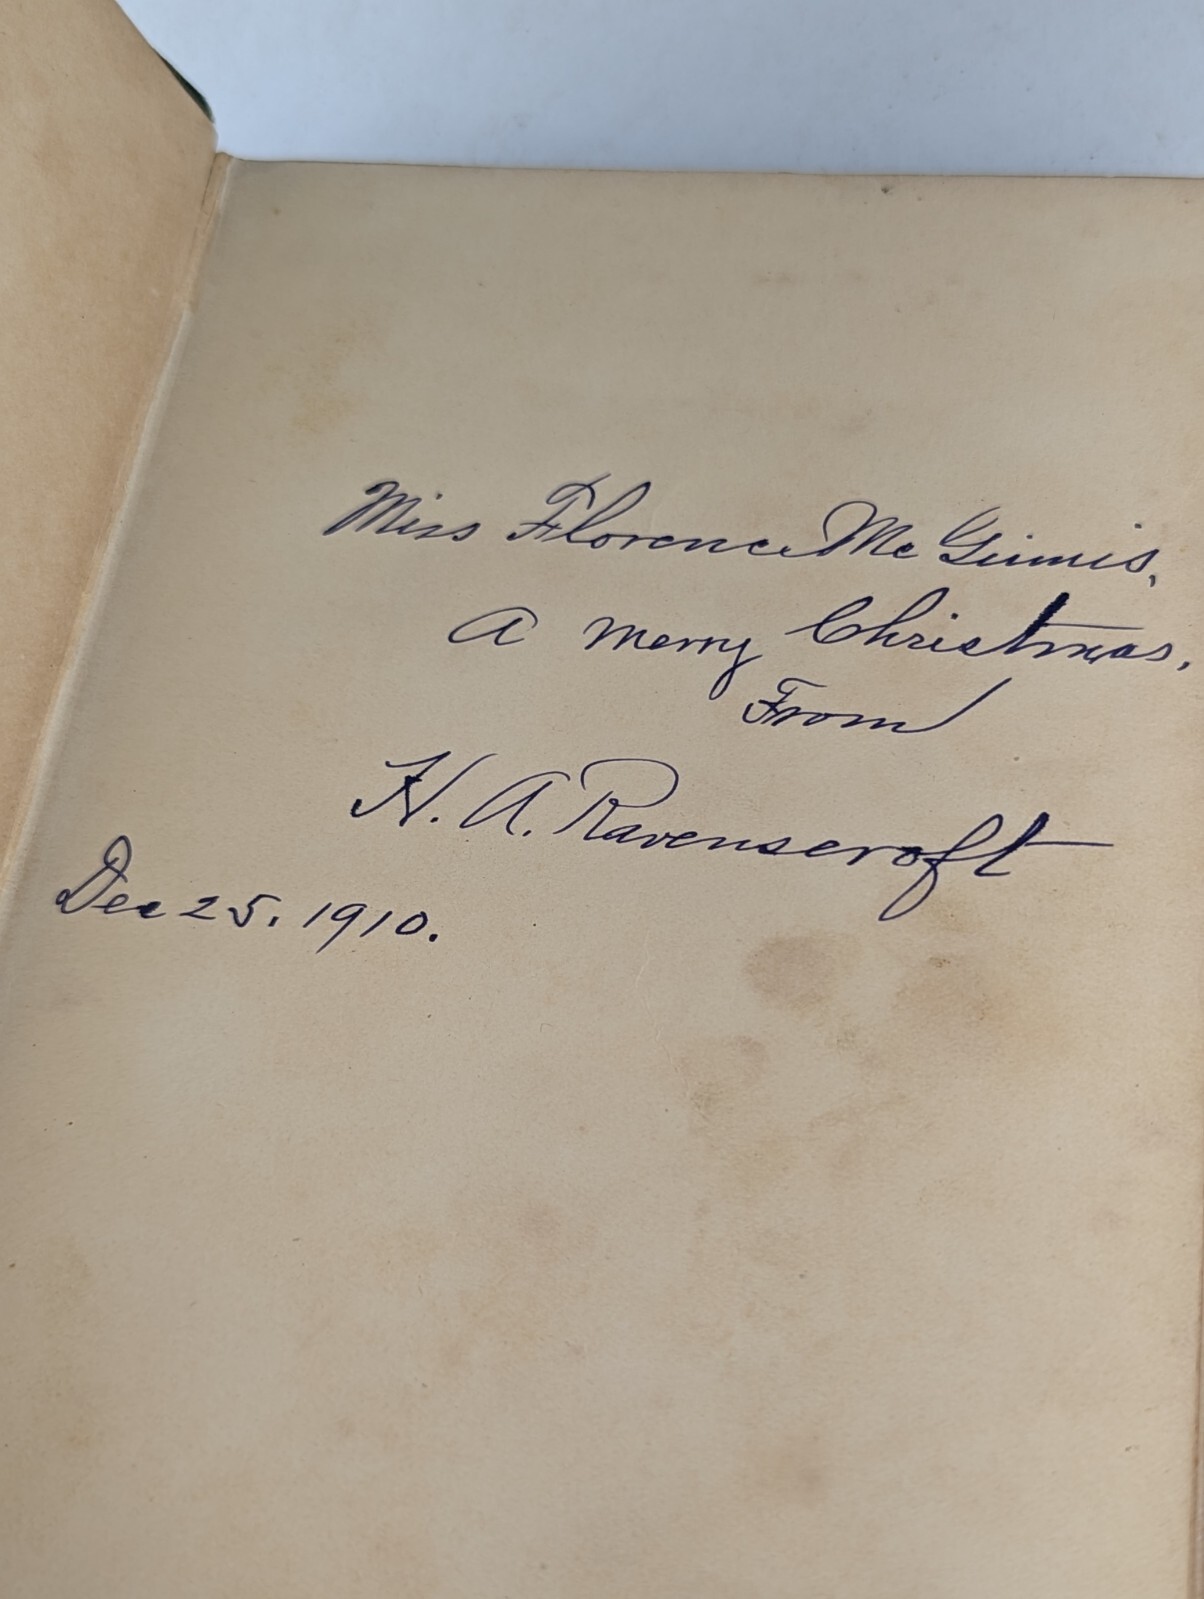 Miss Florence Mc Ginnis,
A merry Christmas,
From
H. A. Ravenscroft
Dec 25, 1910.